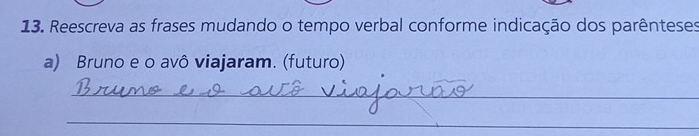 13. Reescreva as frases mudando o tempo verbal conforme indicação dos parênteses
a) Bruno e o avô viajaram. (futuro)
Bruno e o avô viajarão